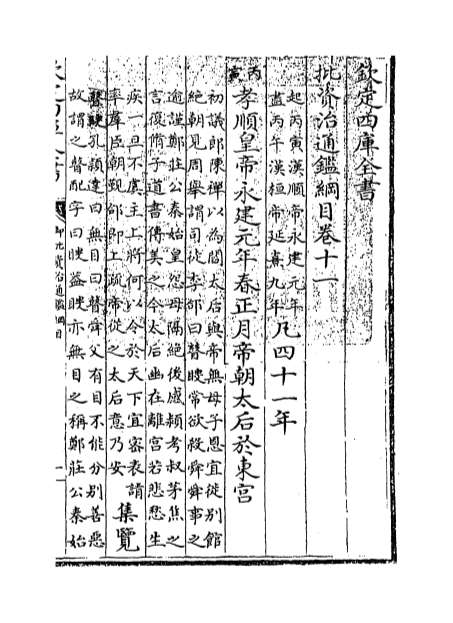 欽定四庫全書
批資治通鑑綱目卷十一
起丙寅漢順帝永建元年
盡丙午漢桓帝延熹九年
凡四十一年
丙寅
孝順皇帝永建元年春正月帝朝太后於東宫
初議郎陳禪以為閻太后與帝無母子恩宜徙别館
絶朝見周舉謂司徒李郃曰瞽瞍常欲殺舜舜事之
逾謹鄭莊公秦始皇怨母隔絶後感頴考叔茅焦之
言復脩子道書傳美之今太后幽在離宫若悲愁生
疾一旦不虞主上將何以令於天下宜密表請
率羣臣朝覲郃即上疏帝從之太后意乃安
集覽
瞽瞍孔頴達曰無目曰瞽舜父有目不能分别善惡
故謂之瞽配字曰瞍葢瞍亦無目之稱鄭莊公秦始
御批資治通鑑綱目